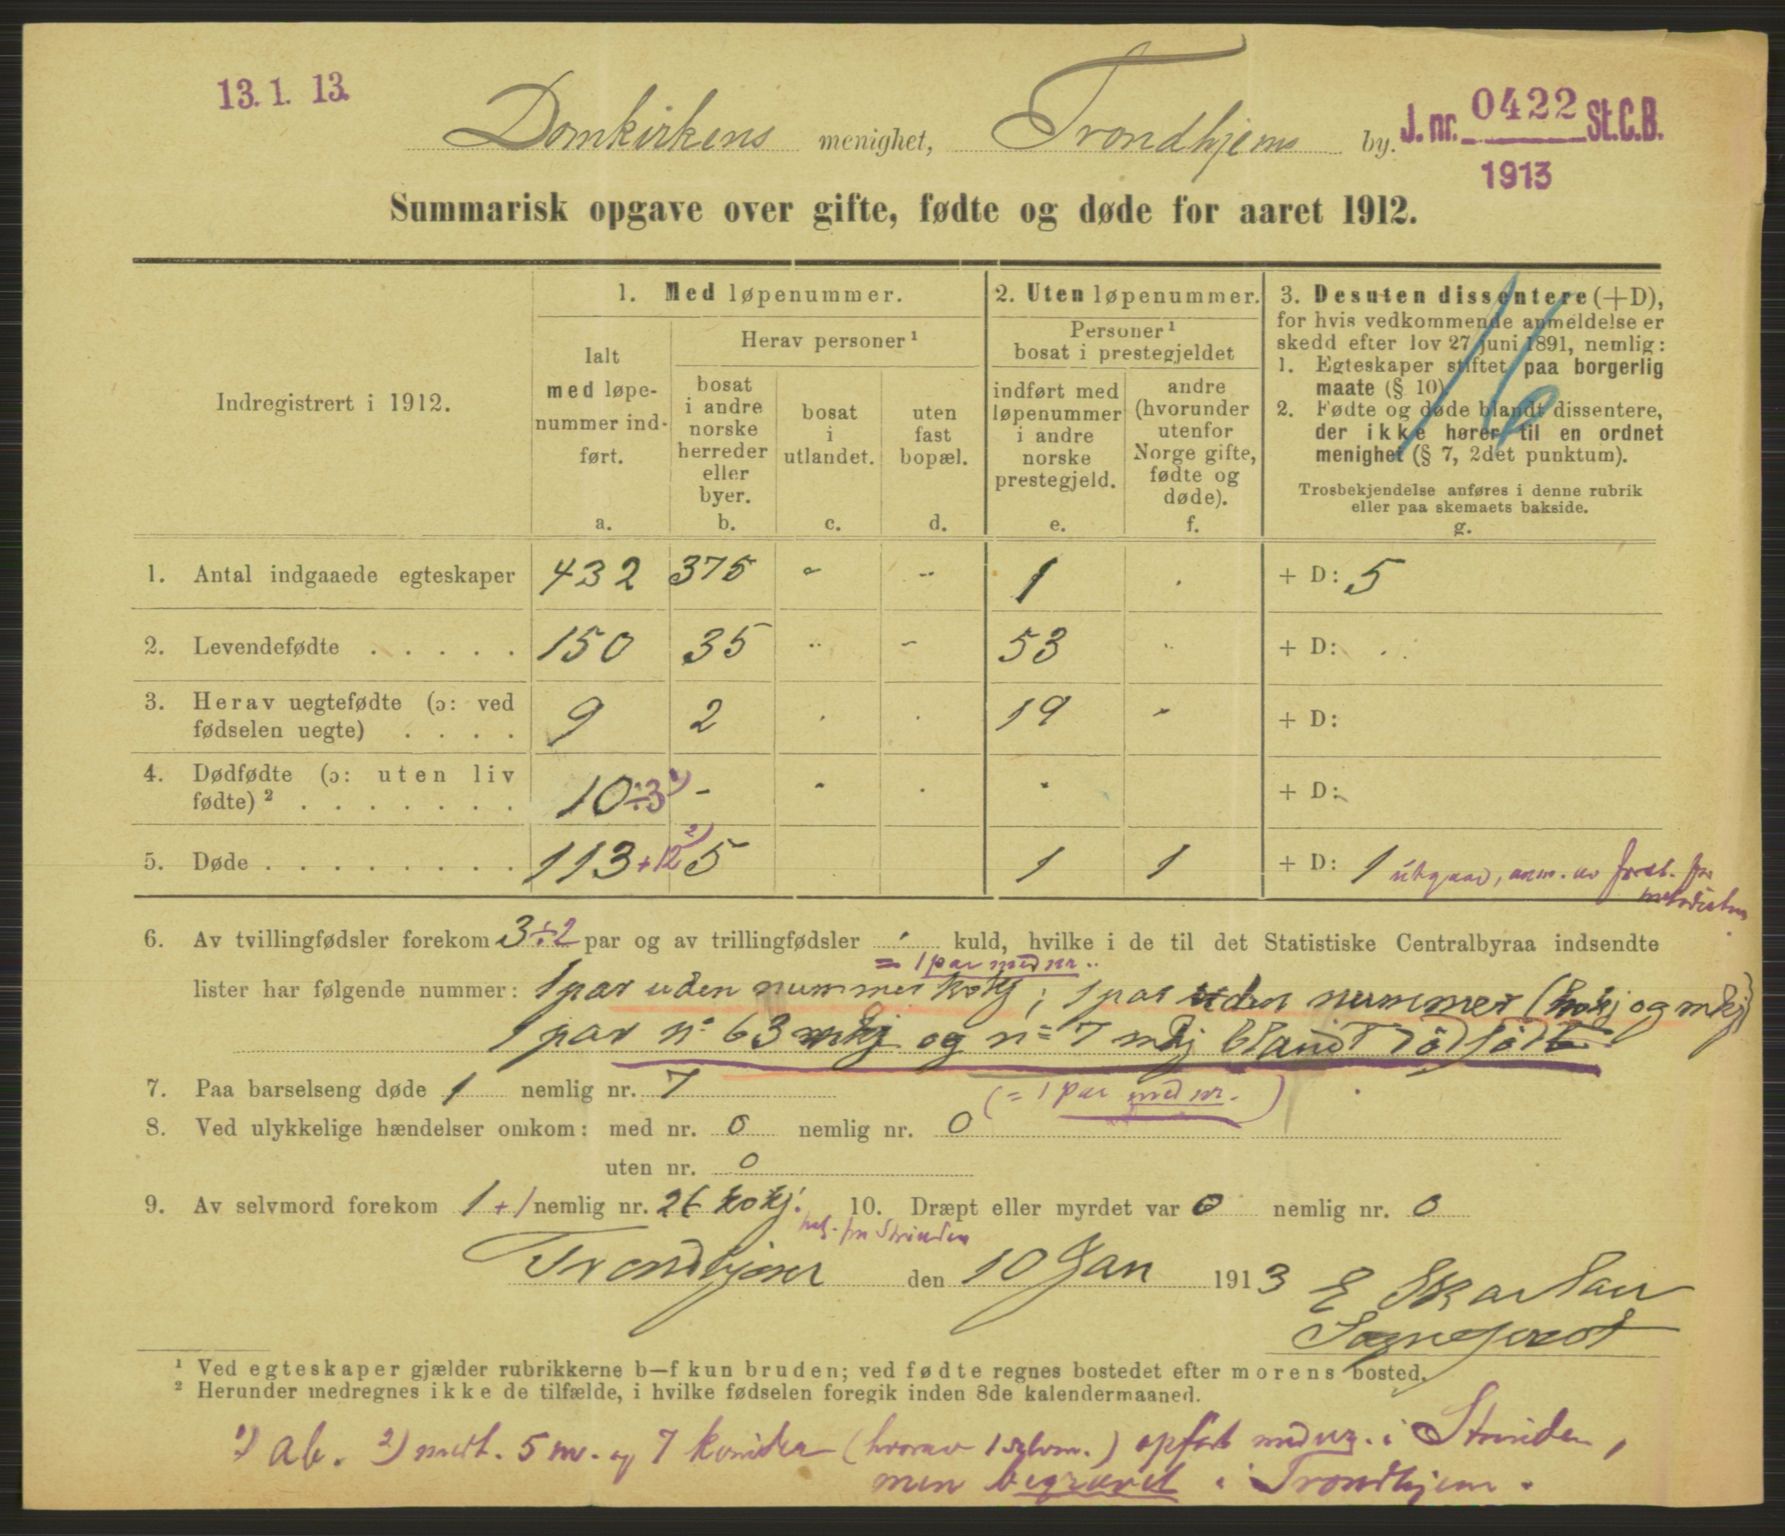 13. 1. 13.
J. nr. 0422 St.C.B.
1913
Domkirkens menighet, Trondhjems by.
Summarisk opgave over gifte, fødte og døde for aaret 1912.
Indregistrert i 1912.
1. Med løpenummer.
Ialt med løpenummer indført.
a.
Herav personer ¹
bosat i andre norske herreder eller byer.
b.
bosat i utlandet.
c.
uten fast bopæl.
d.
2. Uten løpenummer.
Personer ¹ bosat i prestegjeldet
indført med løpenummer i andre norske prestegjeld.
e.
andre (hvorunder utenfor Norge gifte, fødte og døde).
f.
3. Desuten dissentere (+D),
for hvis vedkommende anmeldelse er
skedd efter lov 27 juni 1891, nemlig:
1. Egteskaper stiftet paa borgerlig
maate (§ 10)
2. Fødte og døde blandt dissentere,
der ikke hører til en ordnet
menighet (§ 7, 2det punktum).
Trosbekjendelse anføres i denne rubrik
eller paa skemaets bakside.
g.
16
1. Antal indgaaede egteskaper 432 375 " " 1 . + D: 5
2. Levendefødte . . . . . 150 35 " " 53 " + D: . .
3. Herav uegtefødte (ɔ: ved
fødselen uegte) . . . . 9 2 . . 19 " + D:
4. Dødfødte (ɔ: uten liv
fødte) ² . . . . . . . 10 ÷3 ¹) - " . " + D:
5. Døde . . . . . . . . 113 +12 ²) 5 1 1 + D: 1 utgaar, anm. av forst. for
metodistene
6. Av tvillingfødsler forekom 3÷2 par og av trillingfødsler . kuld, hvilke i de til det Statistiske Centralbyraa indsendte
= 1 par med nr.
lister har følgende nummer: 1 par uden nummer kvkj; 1 par uden nummer (kvkj og mkj)
1 par nº 63 mkj og nº 7 mkj blandt dödfödte
7. Paa barselseng døde 1 nemlig nr. 7
(= 1 par med nr.)
8. Ved ulykkelige hændelser omkom: med nr. 0 nemlig nr. 0
uten nr. 0
9. Av selvmord forekom 1 +1 nemlig nr. 26 kvkj. 10. Dræpt eller myrdet var 0 nemlig nr. 0
fra Strinden
Trondhjem den 10 Jan 1913
Sogneprest
¹ Ved egteskaper gjælder rubrikkerne b—f kun bruden; ved fødte regnes bostedet efter morens bosted.
² Herunder medregnes ikke de tilfælde, i hvilke fødselen foregik inden 8de kalendermaaned.
¹) ab. ²) medt. 5 m. og 7 kvinder (hvorav 1 selvm.) opført med nr. i Strinden,
men begravet i Trondhjem.